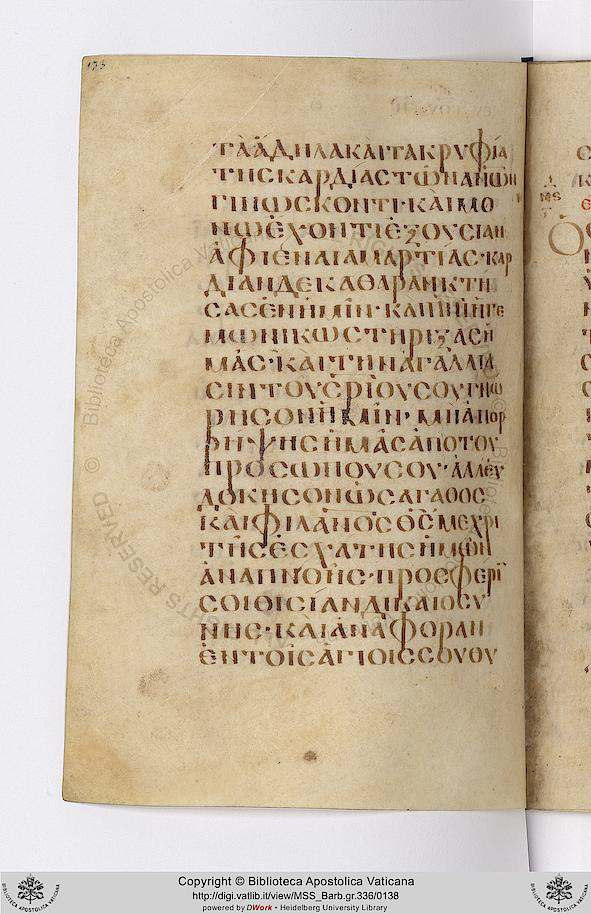 ΤᾺἌΔΗΛΑΚΑῚΤΑΚΡΥΦΙΑ
ΤΗΣΚΑΡΔΙΑΣΤΩΝΑΝΩΝ
ΓΙΝΩΣΚΟΝΤΙ·ΚΑῚΜΟ
ΝΩἘΧΟΝΤΙἘΞΟΥΣΙΑΝ
ἈΦΙΕΝΑΙΑΜΑΡΤΙΑΣ·ΚΑΡ
ΔΙΑΝΔΕΚΑΘΑΡΑΝΚΤΗ
ΣΑΣΕΝΗΜΙΝ·ΚΑΙΠΝΙΗΓΕ
ΜΩΝΙΚΩΣΤΗΡΙΞΑΣΗ
ΜΑΣ·ΚΑῚΤῊΝἈΓΑΛΛΙΑ
ΣΙΝΤΟΥΣΡΙΟΥΣΟΥΓΝΩ
ΡΗΣΟΝΗΜΙΝ·ΜΗΑΠΟΡ
ΡΗΨΗΣΗΜΑΣΑΠΟΤΟΥ
ΠΡΟΣΩΠΟΥΣΟΥ·ἈΛΛΕΥ
ΔΟΚΗΣΟΝΩΣΑΓΑΘΟΣ
ΚΑῚΦΙΛΑΝΟΣΘΣΜΕΧΡΙ
ΤΗΣἘΣΧΑΤΗΣΗΜΩΝ
ἈΝΑΠΝΟΗΣ·ΠΡΟΣΦΕΡΙ
ΣΟΙΘΙΣΙΑΝΔΙΚΑΙΟΣΥ
ΝΗΣ·ΚΑῚἈΝΑΦΟΡΑΝ
ἘΝΤΟΙΣἉΓΙΟΙΣΣΟΥΘΥ
Copyright © Biblioteca Apostolica Vaticana
http://digi.vatlib.it/view/MSS_Barb.gr.336/0138
powered by DWork - Heidelberg University Library